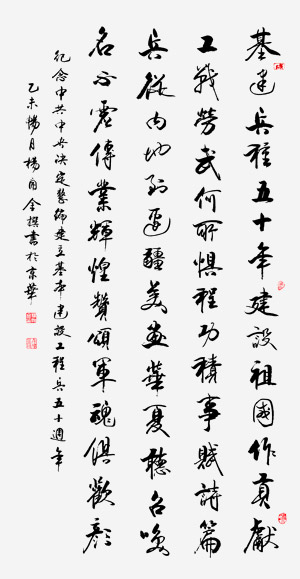 基建兵種五十年建設祖國作貢獻
工戰勞武何所懼程功積事賦詩篇
兵從內地到邊疆美畫華夏聽召喚
名不虛傳業輝煌贊頌軍魂俱歡顏
紀念中共中央決定整編建立基本建設工程兵五十週年
乙未陽月楊自全撰書於京華